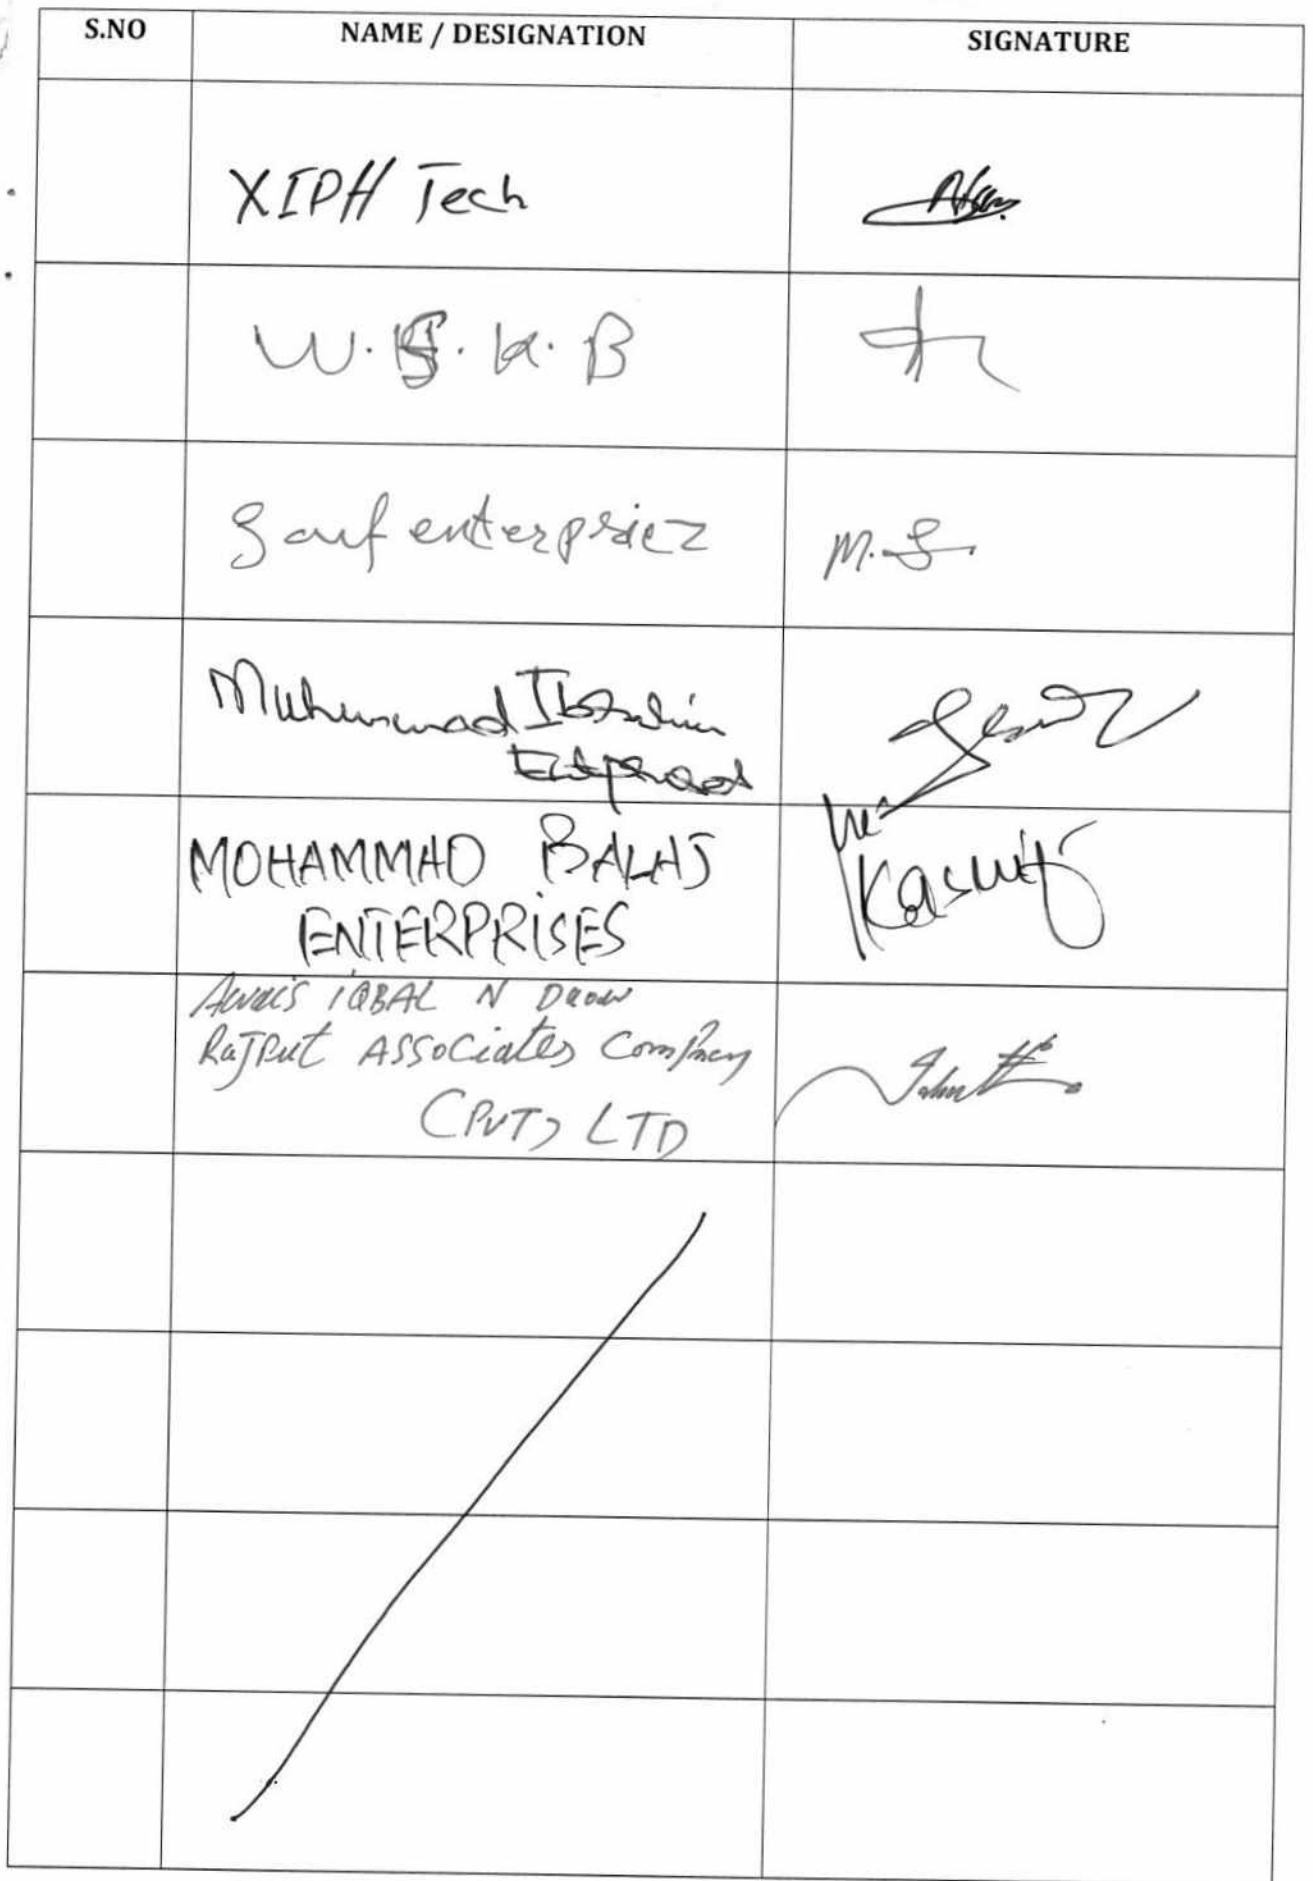 S.NO NAME / DESIGNATION SIGNATURE
XIPH Tech
W. . K. B
enterpriez M. S.
Muhammad Ibrahim
MOHAMMAD BALAJ
ENTERPRISES
Kashif
Awais IQBAL N
RaJPut ASSociates Company
(PVT) LTD